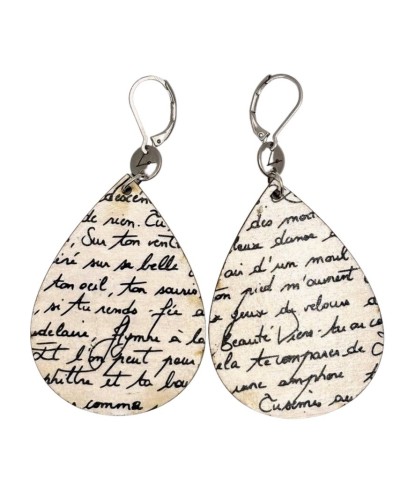 descen
de rien. Tu
Sur ton vent
iré sur sa belle
ton oeil, ton souris
si tu rends - fée a
udelaire, Hymne à la
Et l'on peut pour
philtre et ta bou
comme
des mor
leux danse
air d'un moul
ton pied m'auront
x yeux de velours
Beauté Viens-tu au co
ela te compares de
une amphore
Tu sèmes au